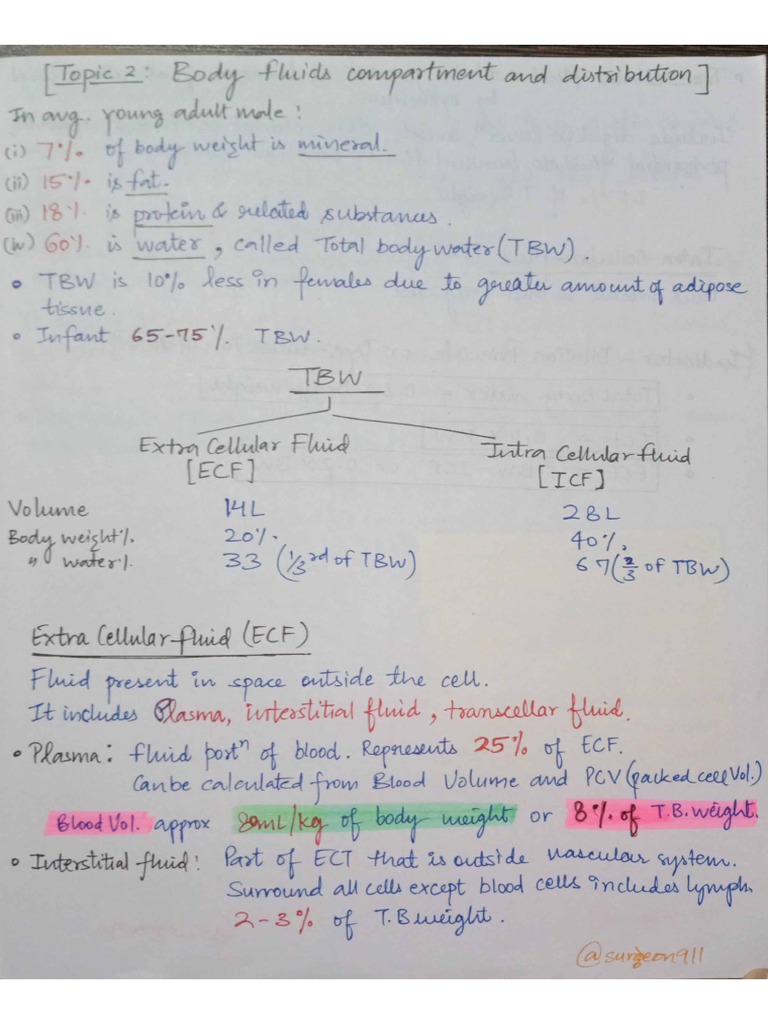 [Topic 2: Body fluids compartment and distribution]
In avg. young adult male:
(i) 7% of body weight is mineral.
(ii) 15% is fat.
(iii) 18% is protein & related substances.
(iv) 60% is water, called Total body water (TBW).
• TBW is 10% less in females due to greater amount of adipose
tissue.
• Infant 65-75% TBW.
TBW
Extra Cellular Fluid
[ECF]
Intra Cellular fluid
[ICF]
Volume 14L 28L
Body weight% 20% 40%
" water% 33 (1/3rd of TBW) 67(2/3 of TBW)
Extra Cellular fluid (ECF)
Fluid present in space outside the cell.
It includes Plasma, interstitial fluid, transcellar fluid.
• Plasma: fluid portn of blood. Represents 25% of ECF.
Can be calculated from Blood Volume and PCV (packed cell Vol.)
Blood Vol. approx 80mL/kg of body weight or 8% of T.B. weight.
• Interstitial fluid: Part of ECT that is outside vascular system.
Surround all cells except blood cells includes lymph.
2-3% of T.B weight.
@surgeon911